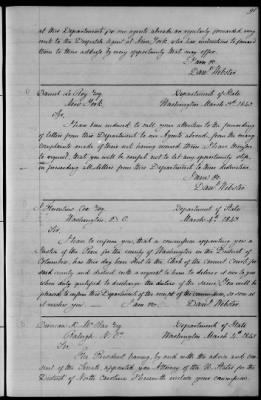 91
at this Department for our agents abroad are regularly forwarded very
sent to the Despatch Agent at New York, who has instructions to forward
them to their address by every opportunity that may offer.
I am &c.
Danl Webster
Daniel Le Roy Esq. Department of State
New York. Washington March 3d 1843
Sir,
I have been induced to call your attention to the forwarding
of letters from this Department to our Agents abroad, from the many
complaints made of their not having received them. I have therefore
to request, that you will be careful not to let any opportunity slip
in forwarding all letters from this Department to their destination
I am &c.
Danl Webster
Florentius Cox Esq. Department of State
Washington, D. C. March 4th 1843
Sir.
I have to inform you, that a commission appointing you a
Justice of the Peace for the county of Washington in the District of
Columbia has this day been sent to the Clerk of the Circuit Court for
said county and district with a request to have it delivered over to you
when duly qualified to discharge the duties of the same. You will be
pleased to inform this Department of the receipt of the commission, as soon as
it reaches you. I am &c. Danl Webster
Duncan K. McRae Esq. Department of State
Raleigh N. C. Washington March 4th 1843
Sir.
The President having, by and with the advice and consent
of the Senate, appointed you Attorney of the U. States for the
District of North Carolina I herewith enclose your commission